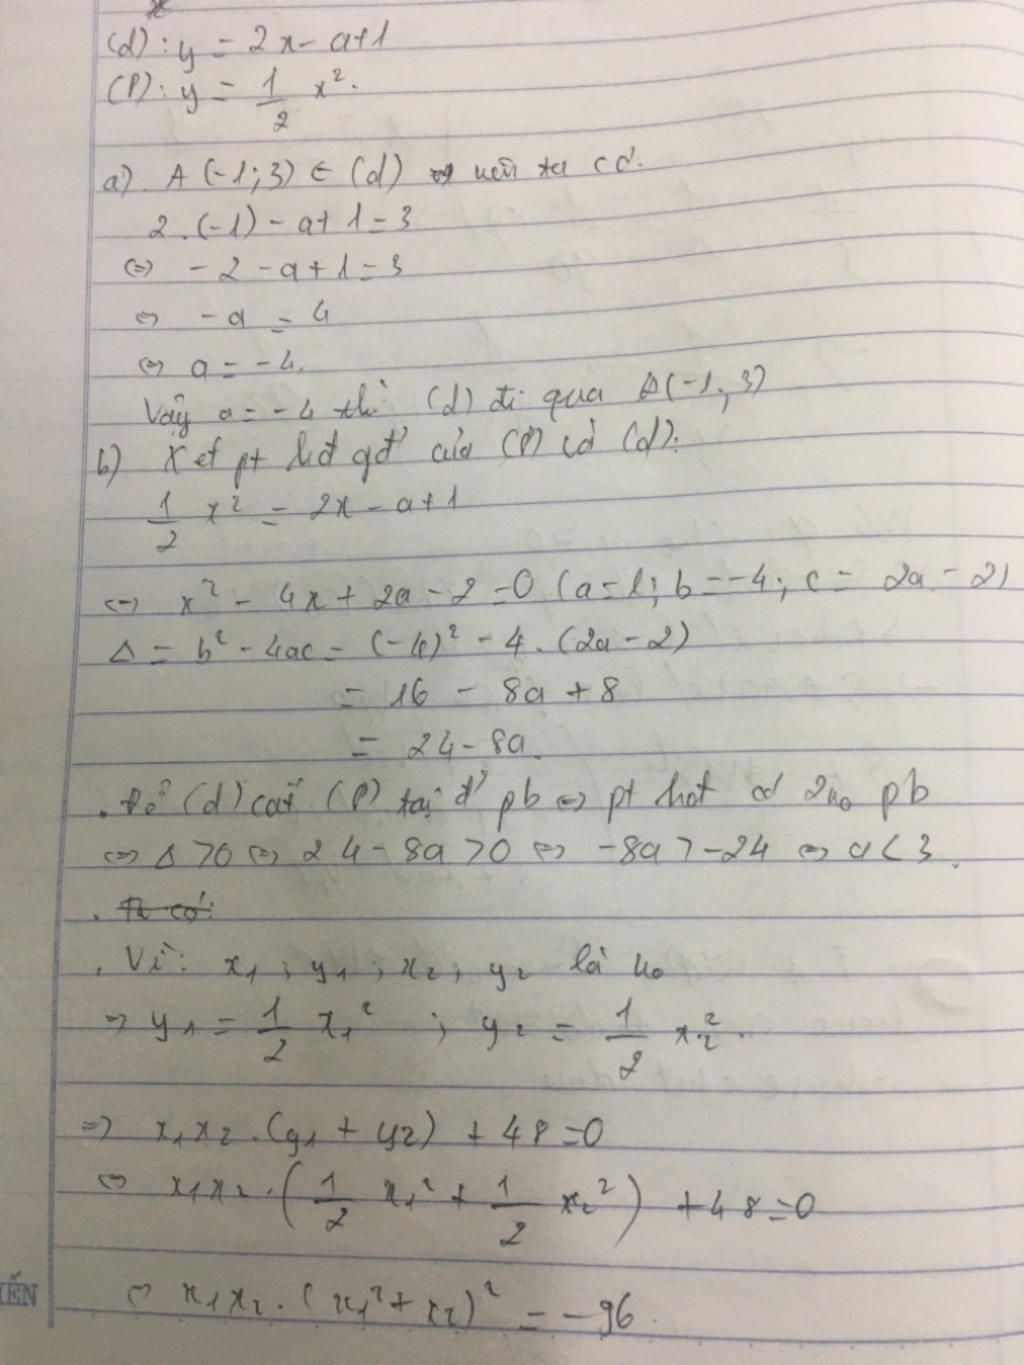 (d): y = 2x - a+1
(P): y = 1/2 x².
a). A (-1; 3) ∈ (d) nên ta có.
2.(-1) - a + 1 = 3
⇔ -2 - a + 1 = 3
⇔ -a = 4
⇔ a = -4.
Vậy a = -4 thì (d) đi qua A(-1; 3)
b) Xét pt hđ gđ của (P) và (d):
1/2 x² = 2x - a + 1
⇔ x² - 4x + 2a - 2 = 0 (a = 1; b = -4; c = 2a - 2)
Δ = b² - 4ac = (-4)² - 4.(2a - 2)
= 16 - 8a + 8
= 24 - 8a.
. Để (d) cắt (P) tại đ' pb ⇔ pt hđt có 2no pb
⇔ Δ > 0 ⇔ 24 - 8a > 0 ⇔ -8a > -24 ⇔ a < 3.
. Ta có:
. Vì: x₁; y₁; x₂; y₂ là no
⇒ y₁ = 1/2 x₁² ; y₂ = 1/2 x₂².
⇒ x₁x₂.(y₁ + y₂) + 48 = 0
⇔ x₁x₂.(1/2 x₁² + 1/2 x₂²) + 48 = 0
⇔ x₁x₂.(x₁² + x₂)² = -96.
IẾN